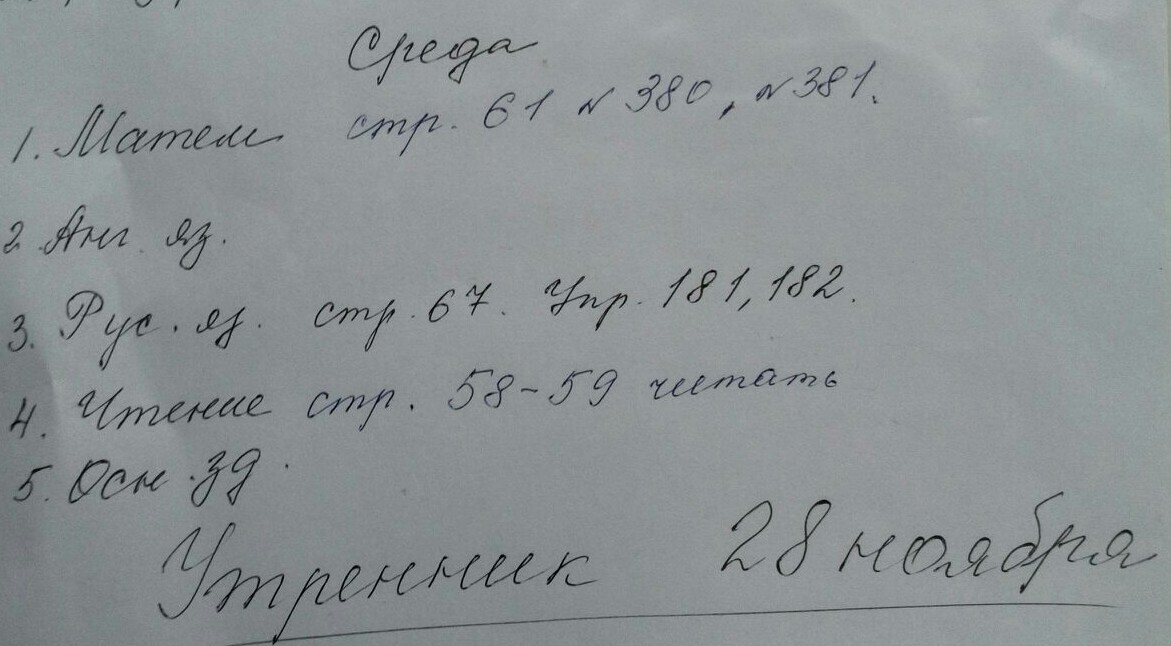 Среда
1. Матем стр. 61 № 380, № 381.
2. Анг. яз.
3. Рус. яз. стр. 67. Упр. 181, 182.
4. Чтение стр. 58-59 читать
5. Осн. зд.
Утренник 28 ноября